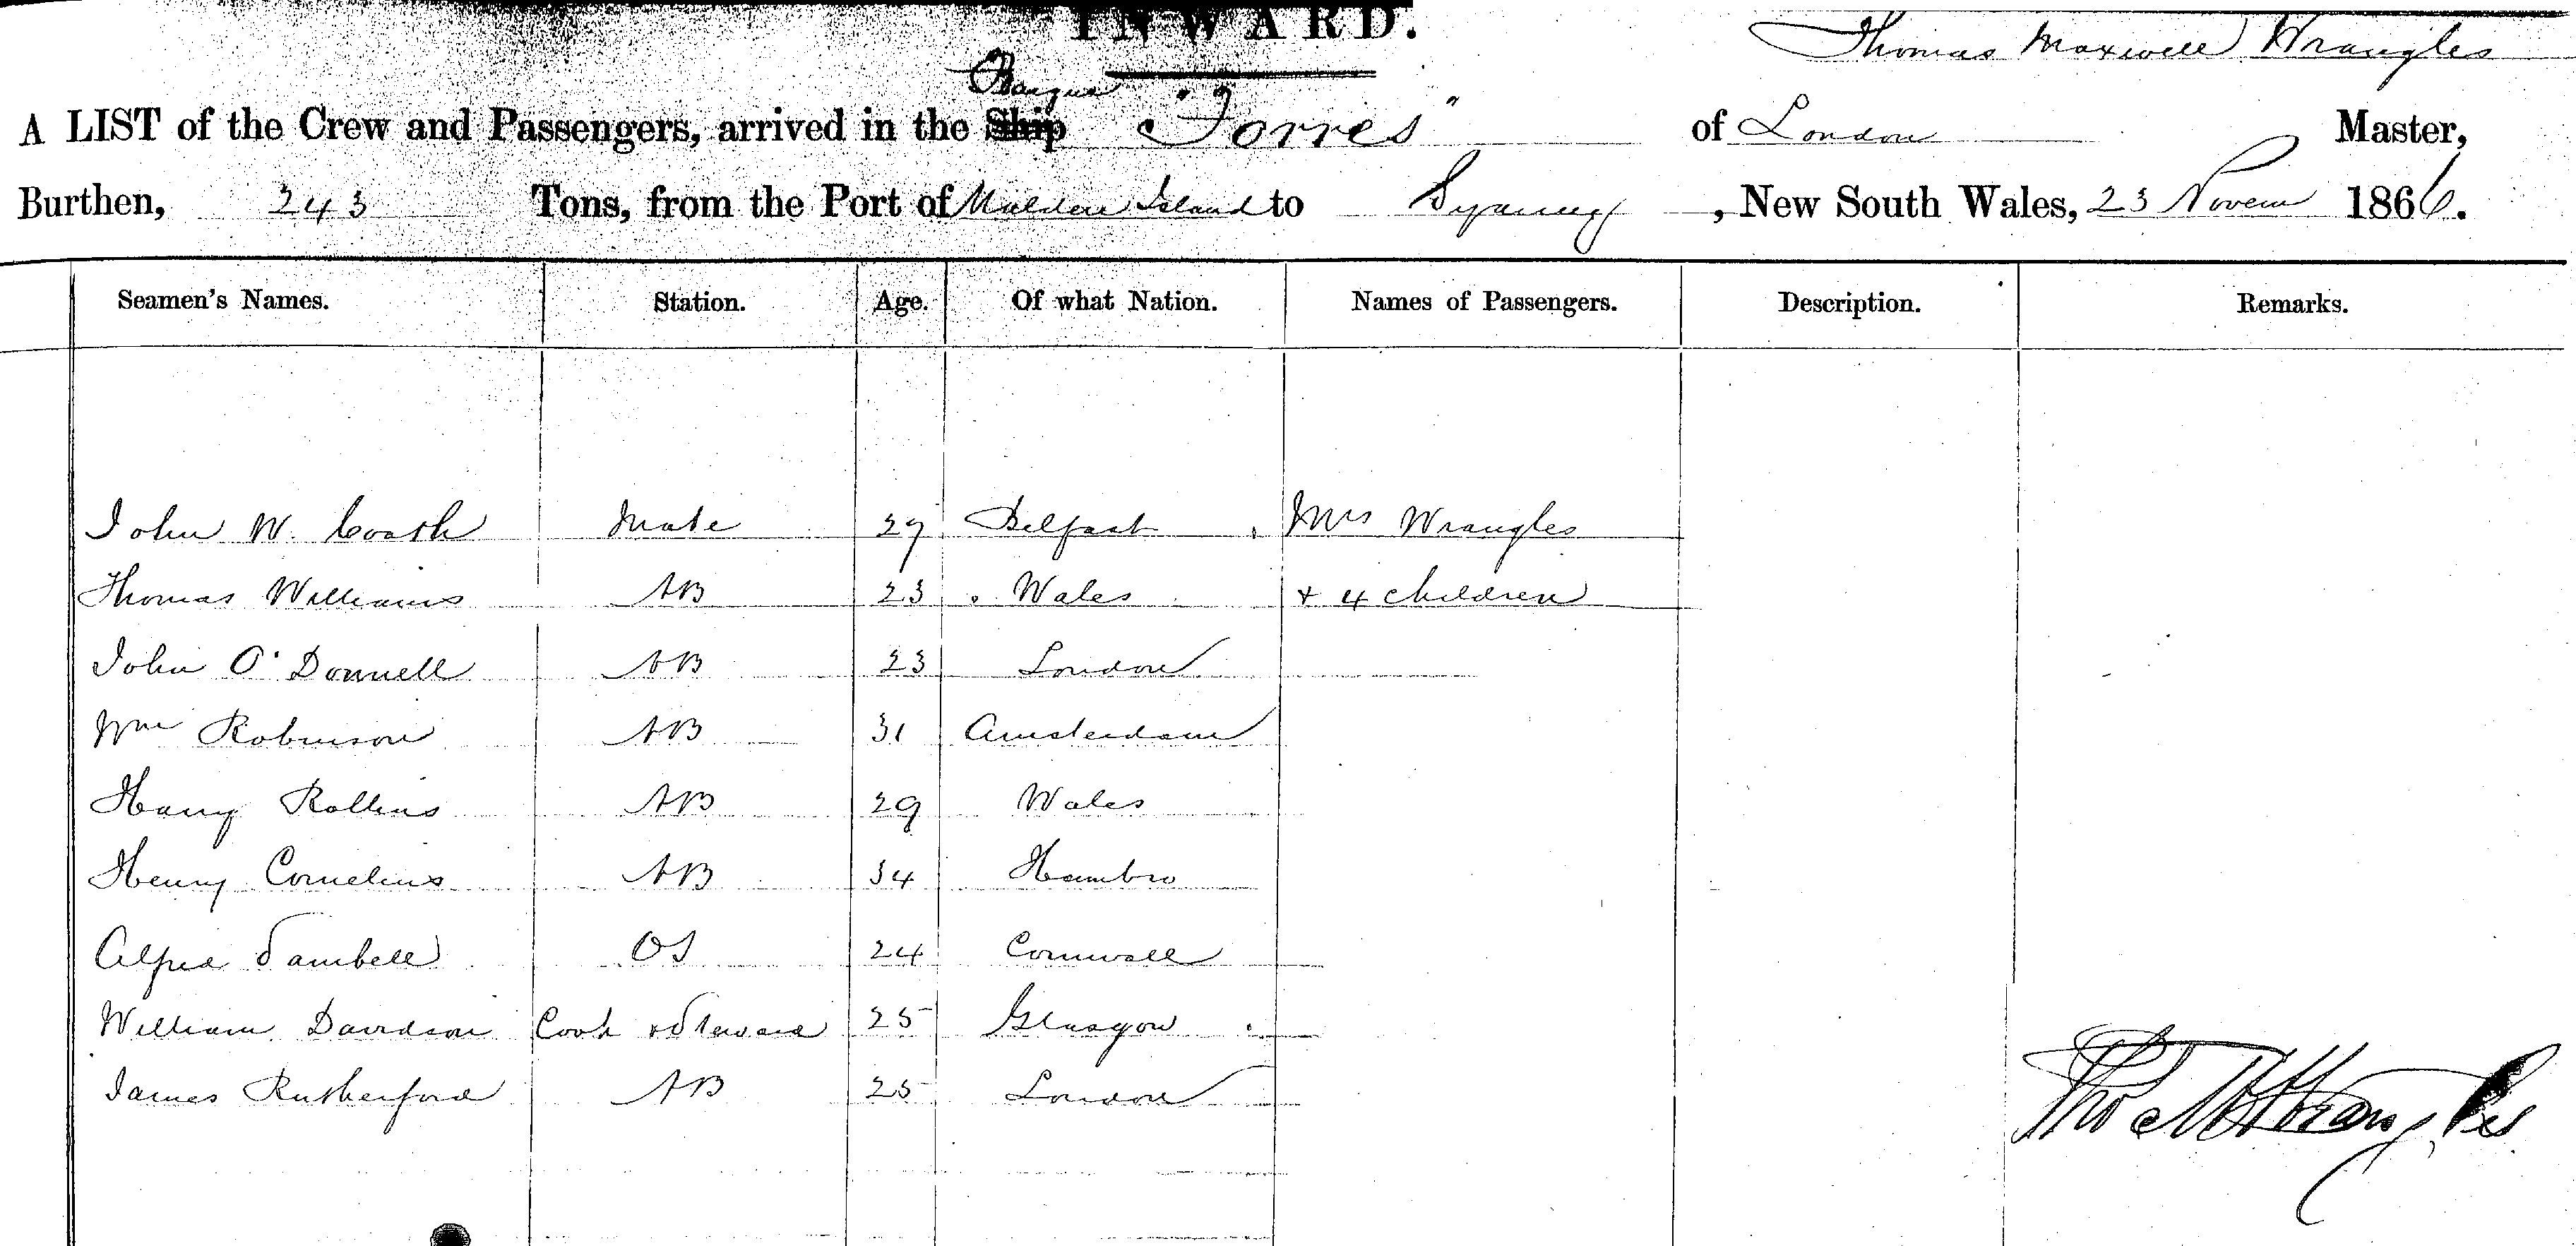 INWARD.
Thomas Maxwell Wrangles
Barque
A LIST of the Crew and Passengers, arrived in the Ship "Torres" of London Master,
Burthen, 243 Tons, from the Port of Malden Island to Sydney, New South Wales, 23 Novem 1866.
Seamen's Names. Station. Age. Of what Nation. Names of Passengers. Description. Remarks.
John W. Coath Mate 27 Belfast Mrs Wrangles
Thomas Williams AB 23 Wales + 4 children
John O'Donnell AB 23 London
Wm Robinson AB 31 Amsterdam
Harry Rollins AB 29 Wales
Henry Cornelius AB 34 Hambro
Alfred Tambell OS 24 Cornwall
William Davidson Cook & Steward 25 Glasgow
James Rutherford AB 25 London
Tho M Wrangles